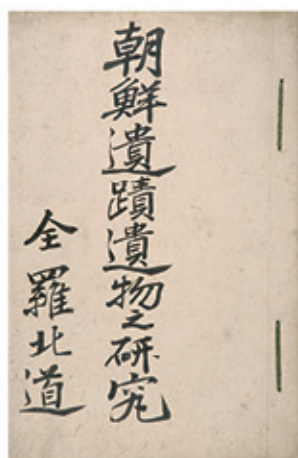 朝鮮遺蹟遺物之研究
全羅北道